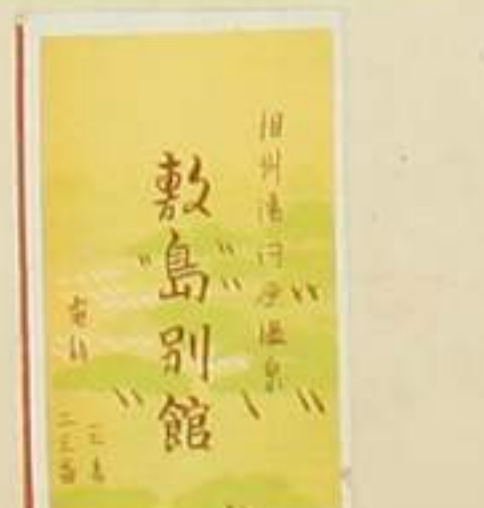 相州湯河原温泉
敷島別館
電話